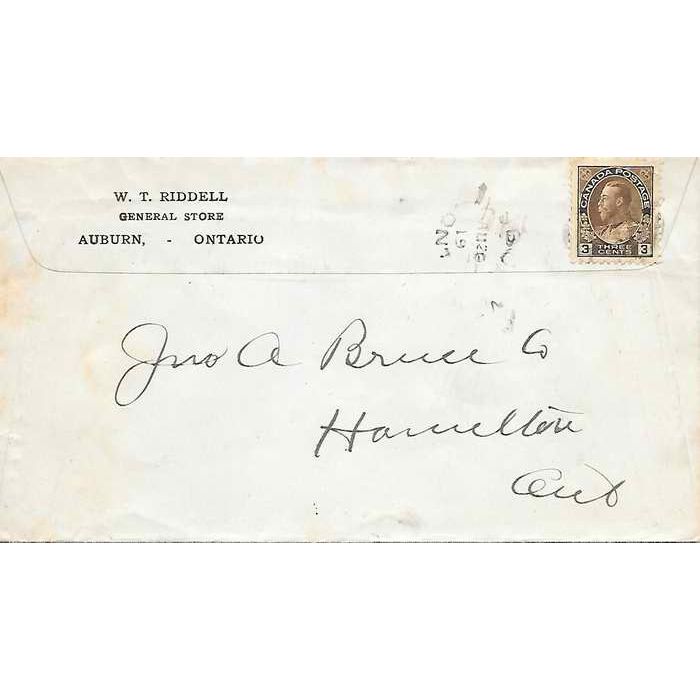 W. T. RIDDELL
GENERAL STORE
AUBURN, - ONTARIO
CANADA POSTAGE
3 THREE CENTS 3
Jno A Bruce Co
Hamilton
Ont